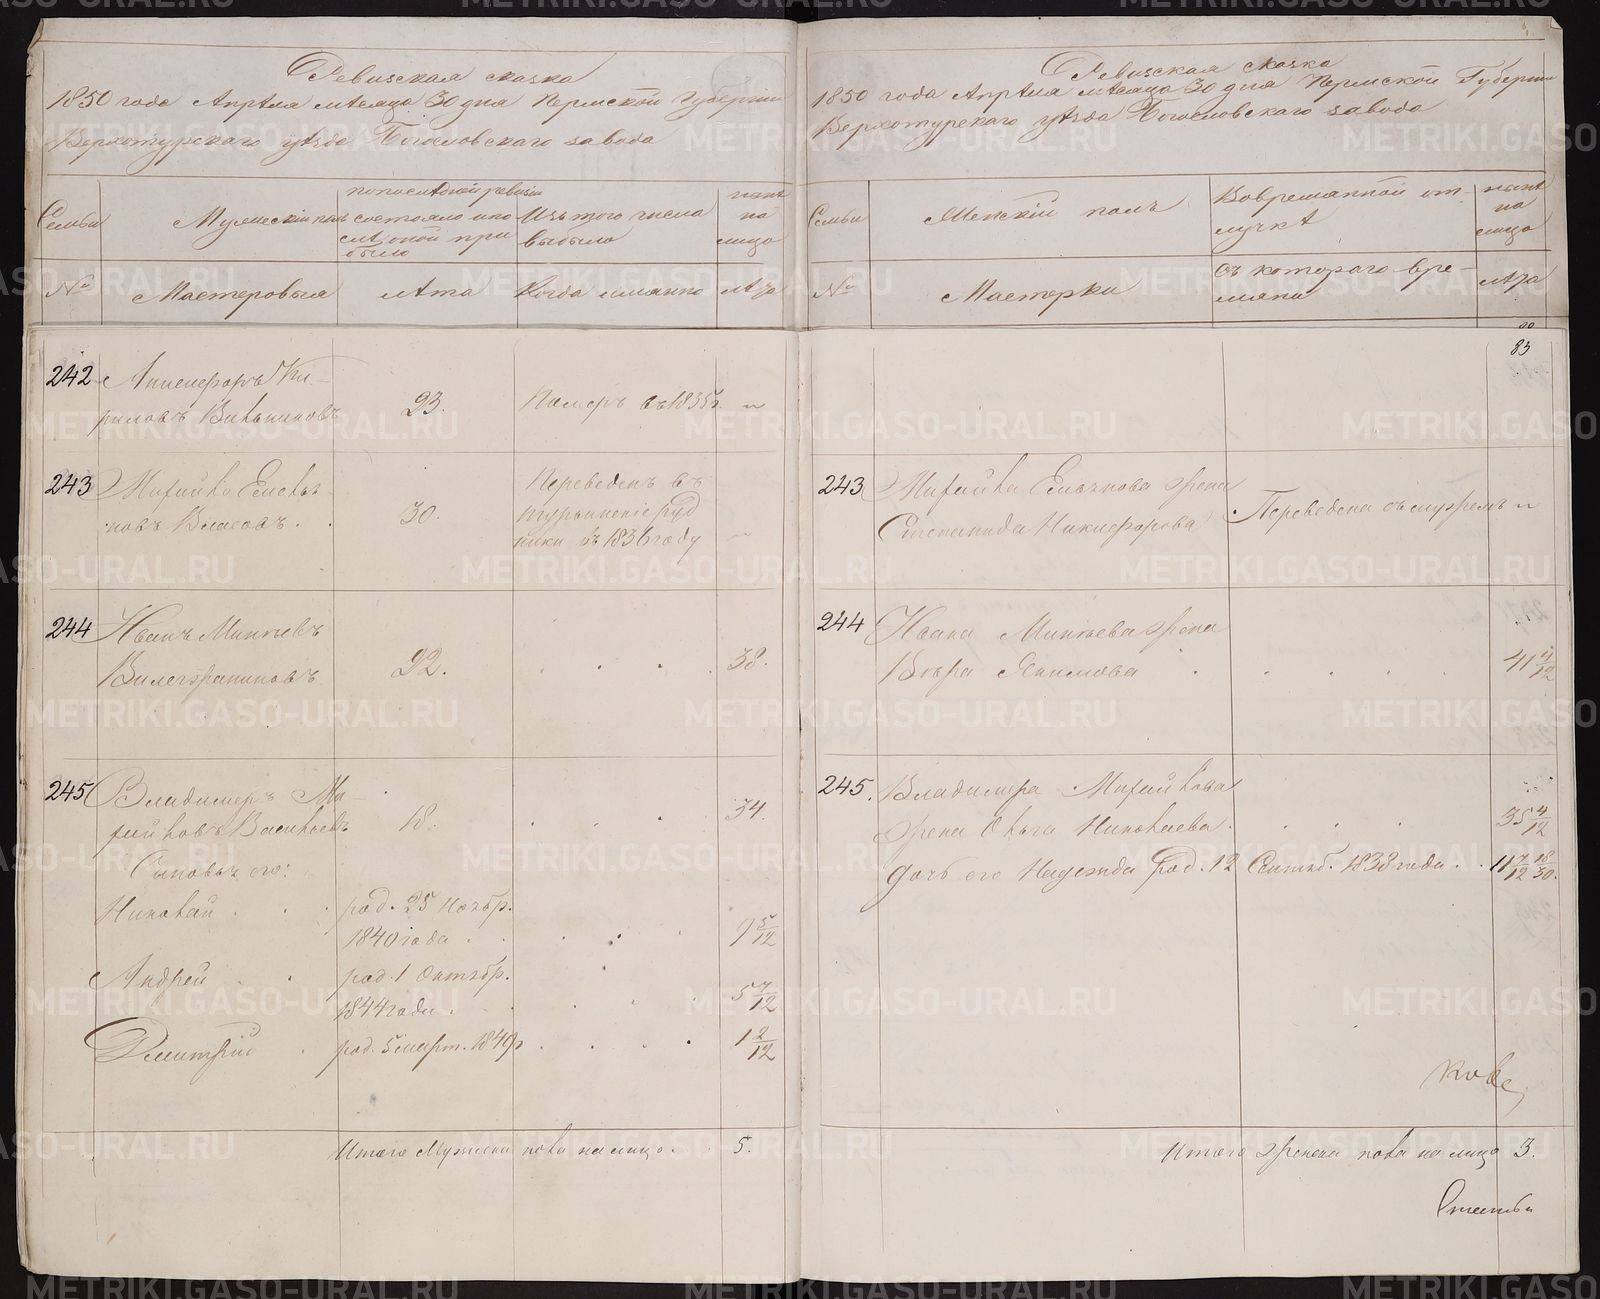 Ревизская сказка
1850 года Апрѣля мѣсяца 30 дня Пермской Губерніи
Верхотурскаго уѣзда Богословскаго завода
Семьи
Мужескій полъ
попослѣдней ревизіи
состояло и по
слѣ оной при
было
Изъ того числа
выбыло
нынѣ
на
лицо
№
Мастеровыя
лѣта
Когда имянно
лѣта
242
Никифоръ Ки-
риловъ
23.
Померъ въ 1835 г.
243
Михайло
Власовъ.
30.
Переведенъ въ
Турьинскіе руд
ники въ 1836 году
244
Иванъ
22.
38.
245
Владимеръ Ми-
хайловъ
18.
34.
Сыновья его:
Николай
род. 25 Ноябр.
1840 года
9 5/12
Андрей
род. 1 Октябр.
1844 года.
5 7/12
Дмитрій
род. 5 март. 1849 г
1 2/12
Итого Мужеска пола на лицо.
5.
Ревизская сказка
1850 года Апрѣля мѣсяца 30 дня Пермской Губерніи
Верхотурскаго уѣзда Богословскаго завода
Семьи
Женскій полъ
Вовременной от-
лучкѣ
нынѣ
на
лицо
№
Мастерки
съ котораго вре-
мяни
лѣта
83
243
Михайла жена
Степанида Никифорова
Переведена съ мужемъ
244
Ивана жена
Вѣра Якимова
41 4/12
245.
Владимера Михайлова
жена Ольга Николаева.
35 4/12
дочь его Надежда род. 12 Сентяб. 1838 года
11 7/12 18/30.
Итого женска пола на лицо 3.
METRIKI.GASO-URAL.RU